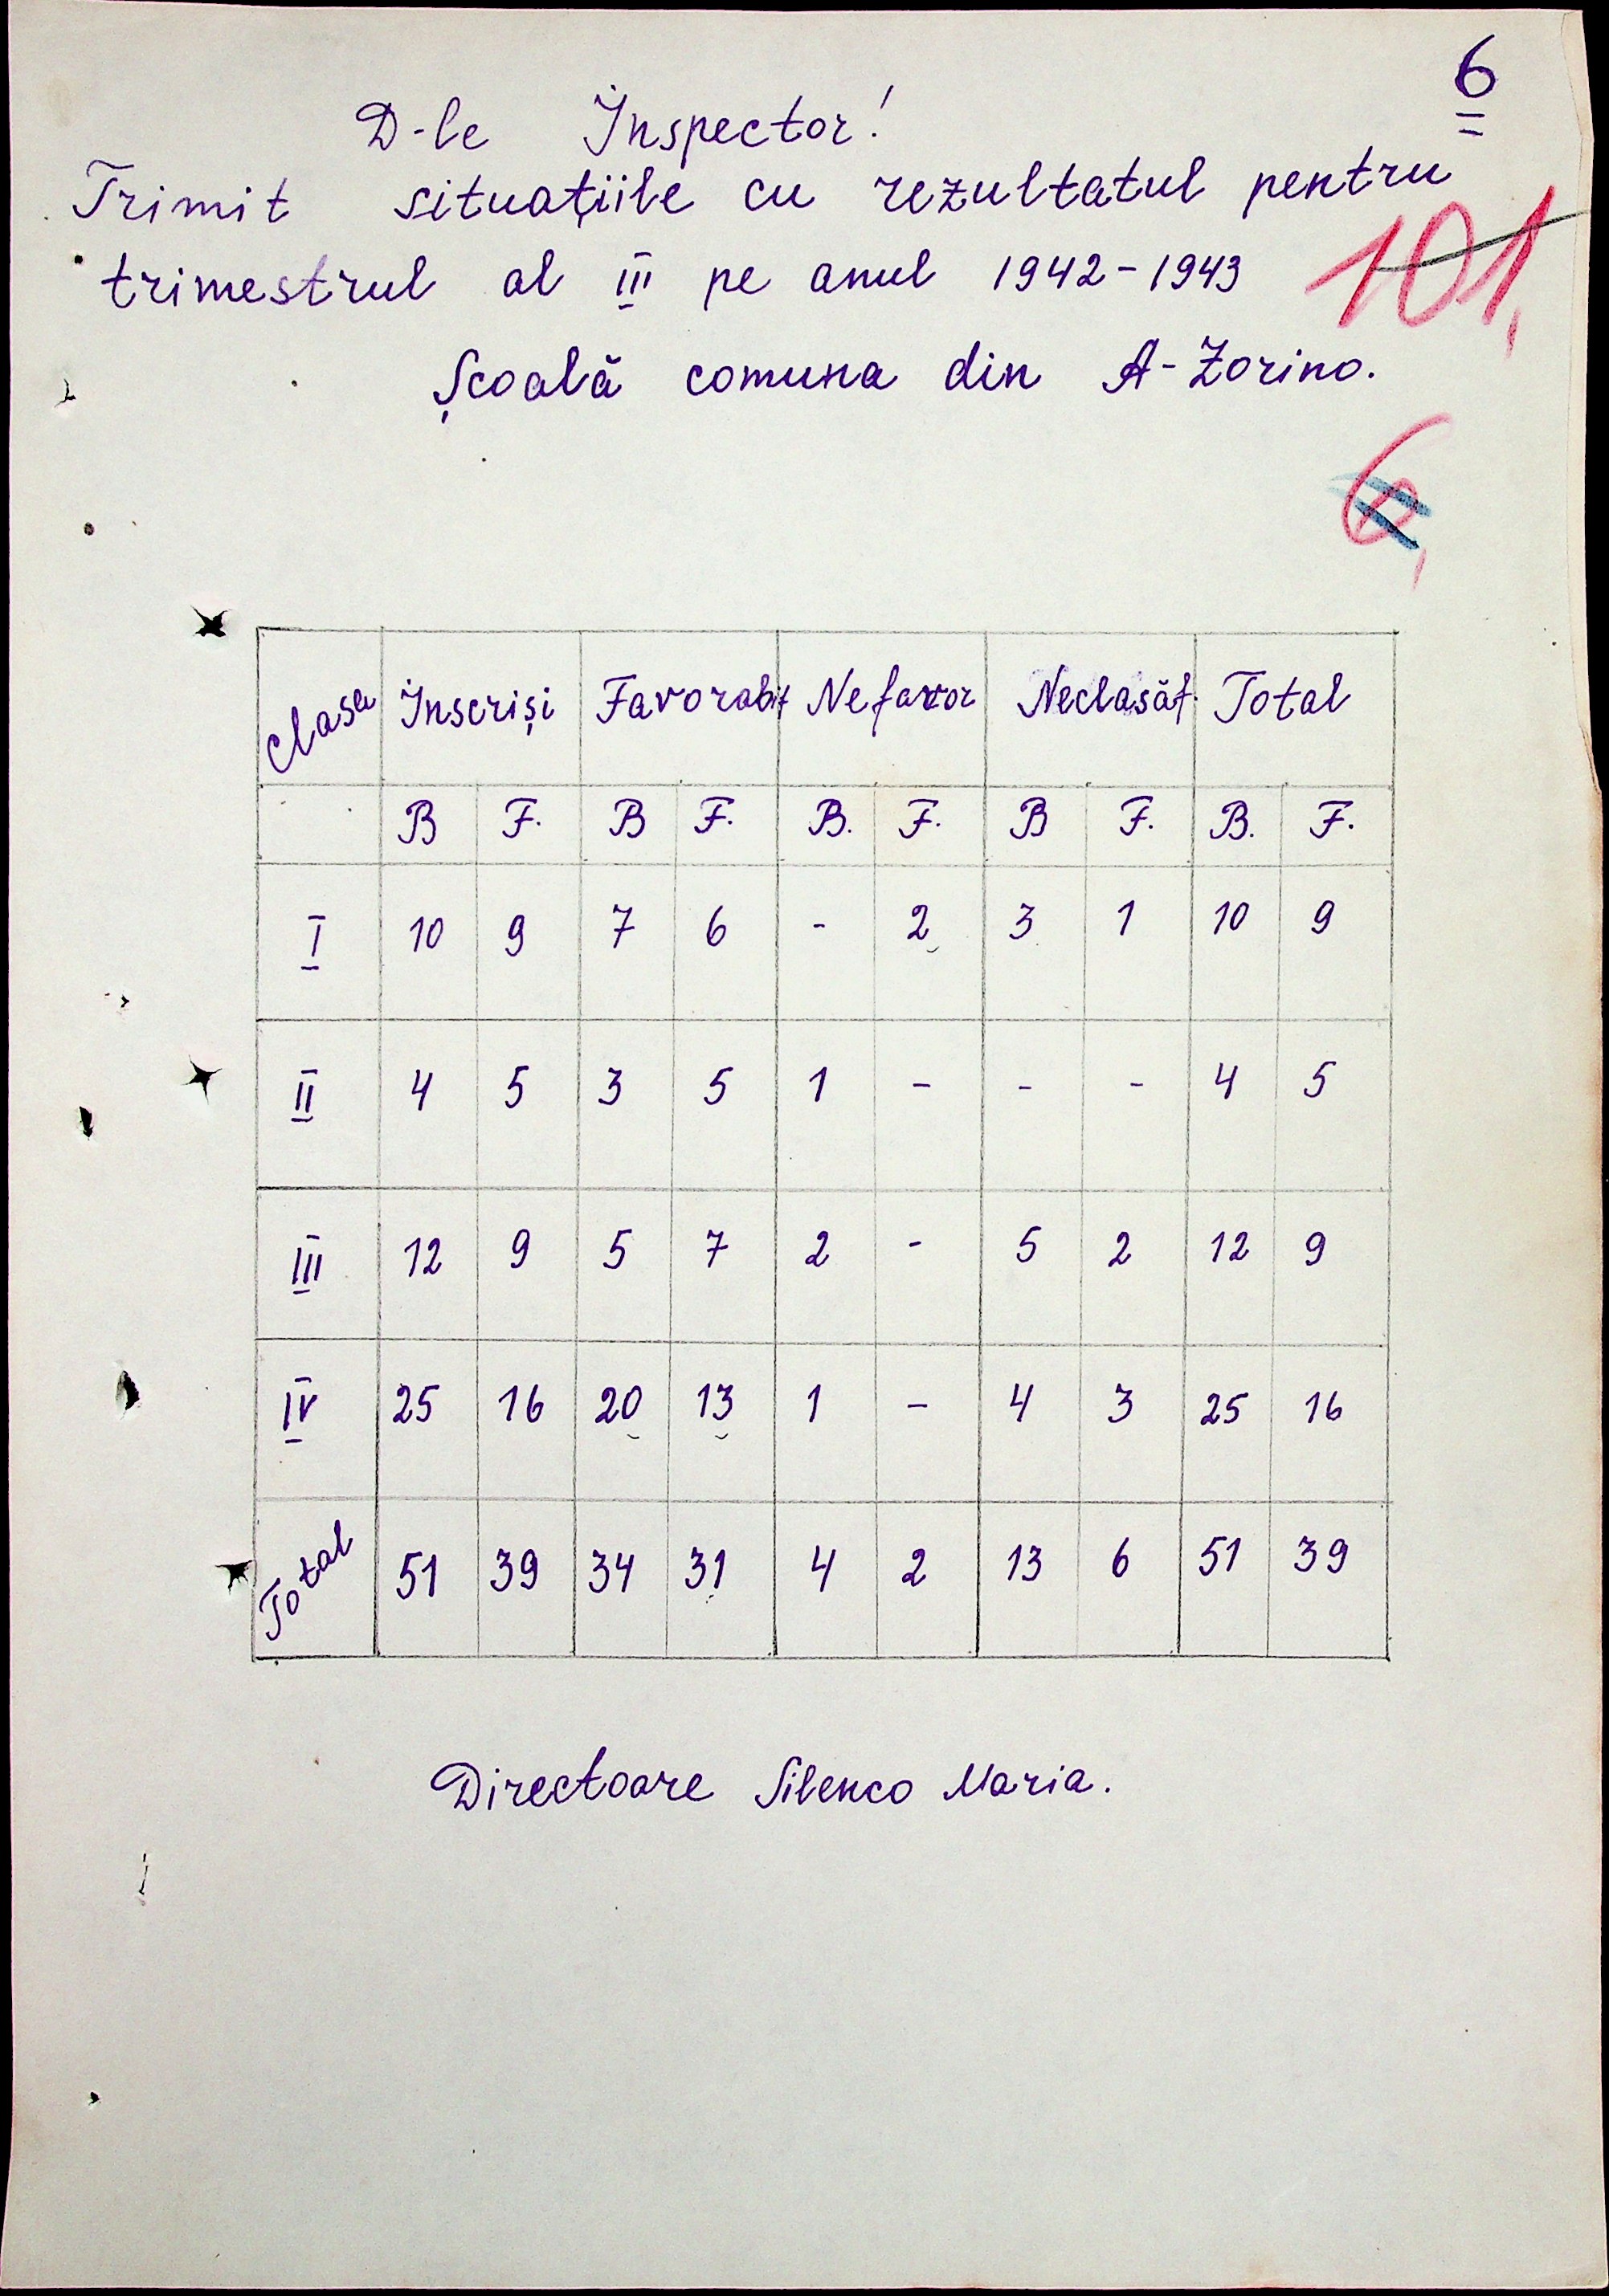 6
D-le Inspector!
Trimit situațiile cu rezultatul pentru
trimestrul al III pe anul 1942-1943
101,
Școală comuna din A-Zorino.
6,
Clasa Inscriși Favorabil Nefavor Neclasăt Total
B F. B F. B. F. B F. B. F.
I 10 9 7 6 - 2 3 1 10 9
II 4 5 3 5 1 - - - 4 5
III 12 9 5 7 2 - 5 2 12 9
IV 25 16 20 13 1 - 4 3 25 16
Total 51 39 34 31 4 2 13 6 51 39
Directoare Silenco Maria.